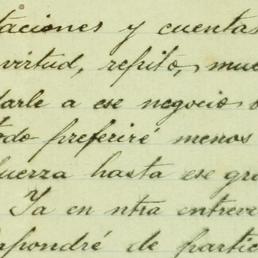 taciones y cuentas
virtud, repito, mue
darle a ese negocio
todo preferiré menos
fuerza hasta ese gra
Ya en ntra entreve
spondré de partic